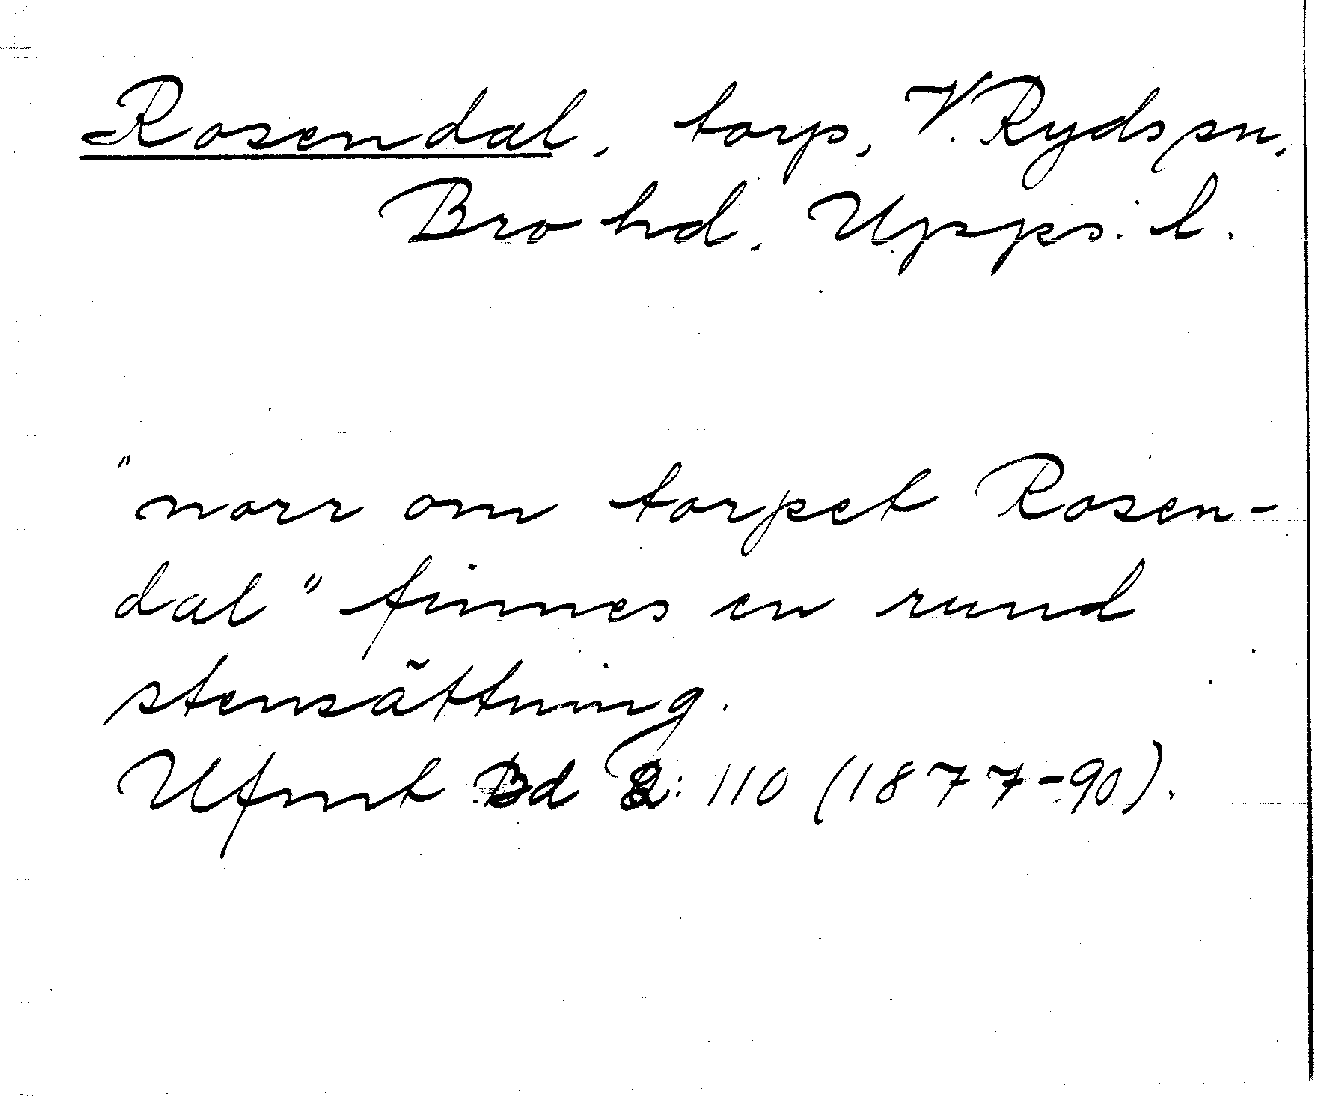 Rosendal, torp, V. Ryds sn,
Bro hd. Upps. l.
"norr om torpet Rosen-
dal" finnes en rund
stensättning.
Ufmt Bd 2: 110 (1877-90).